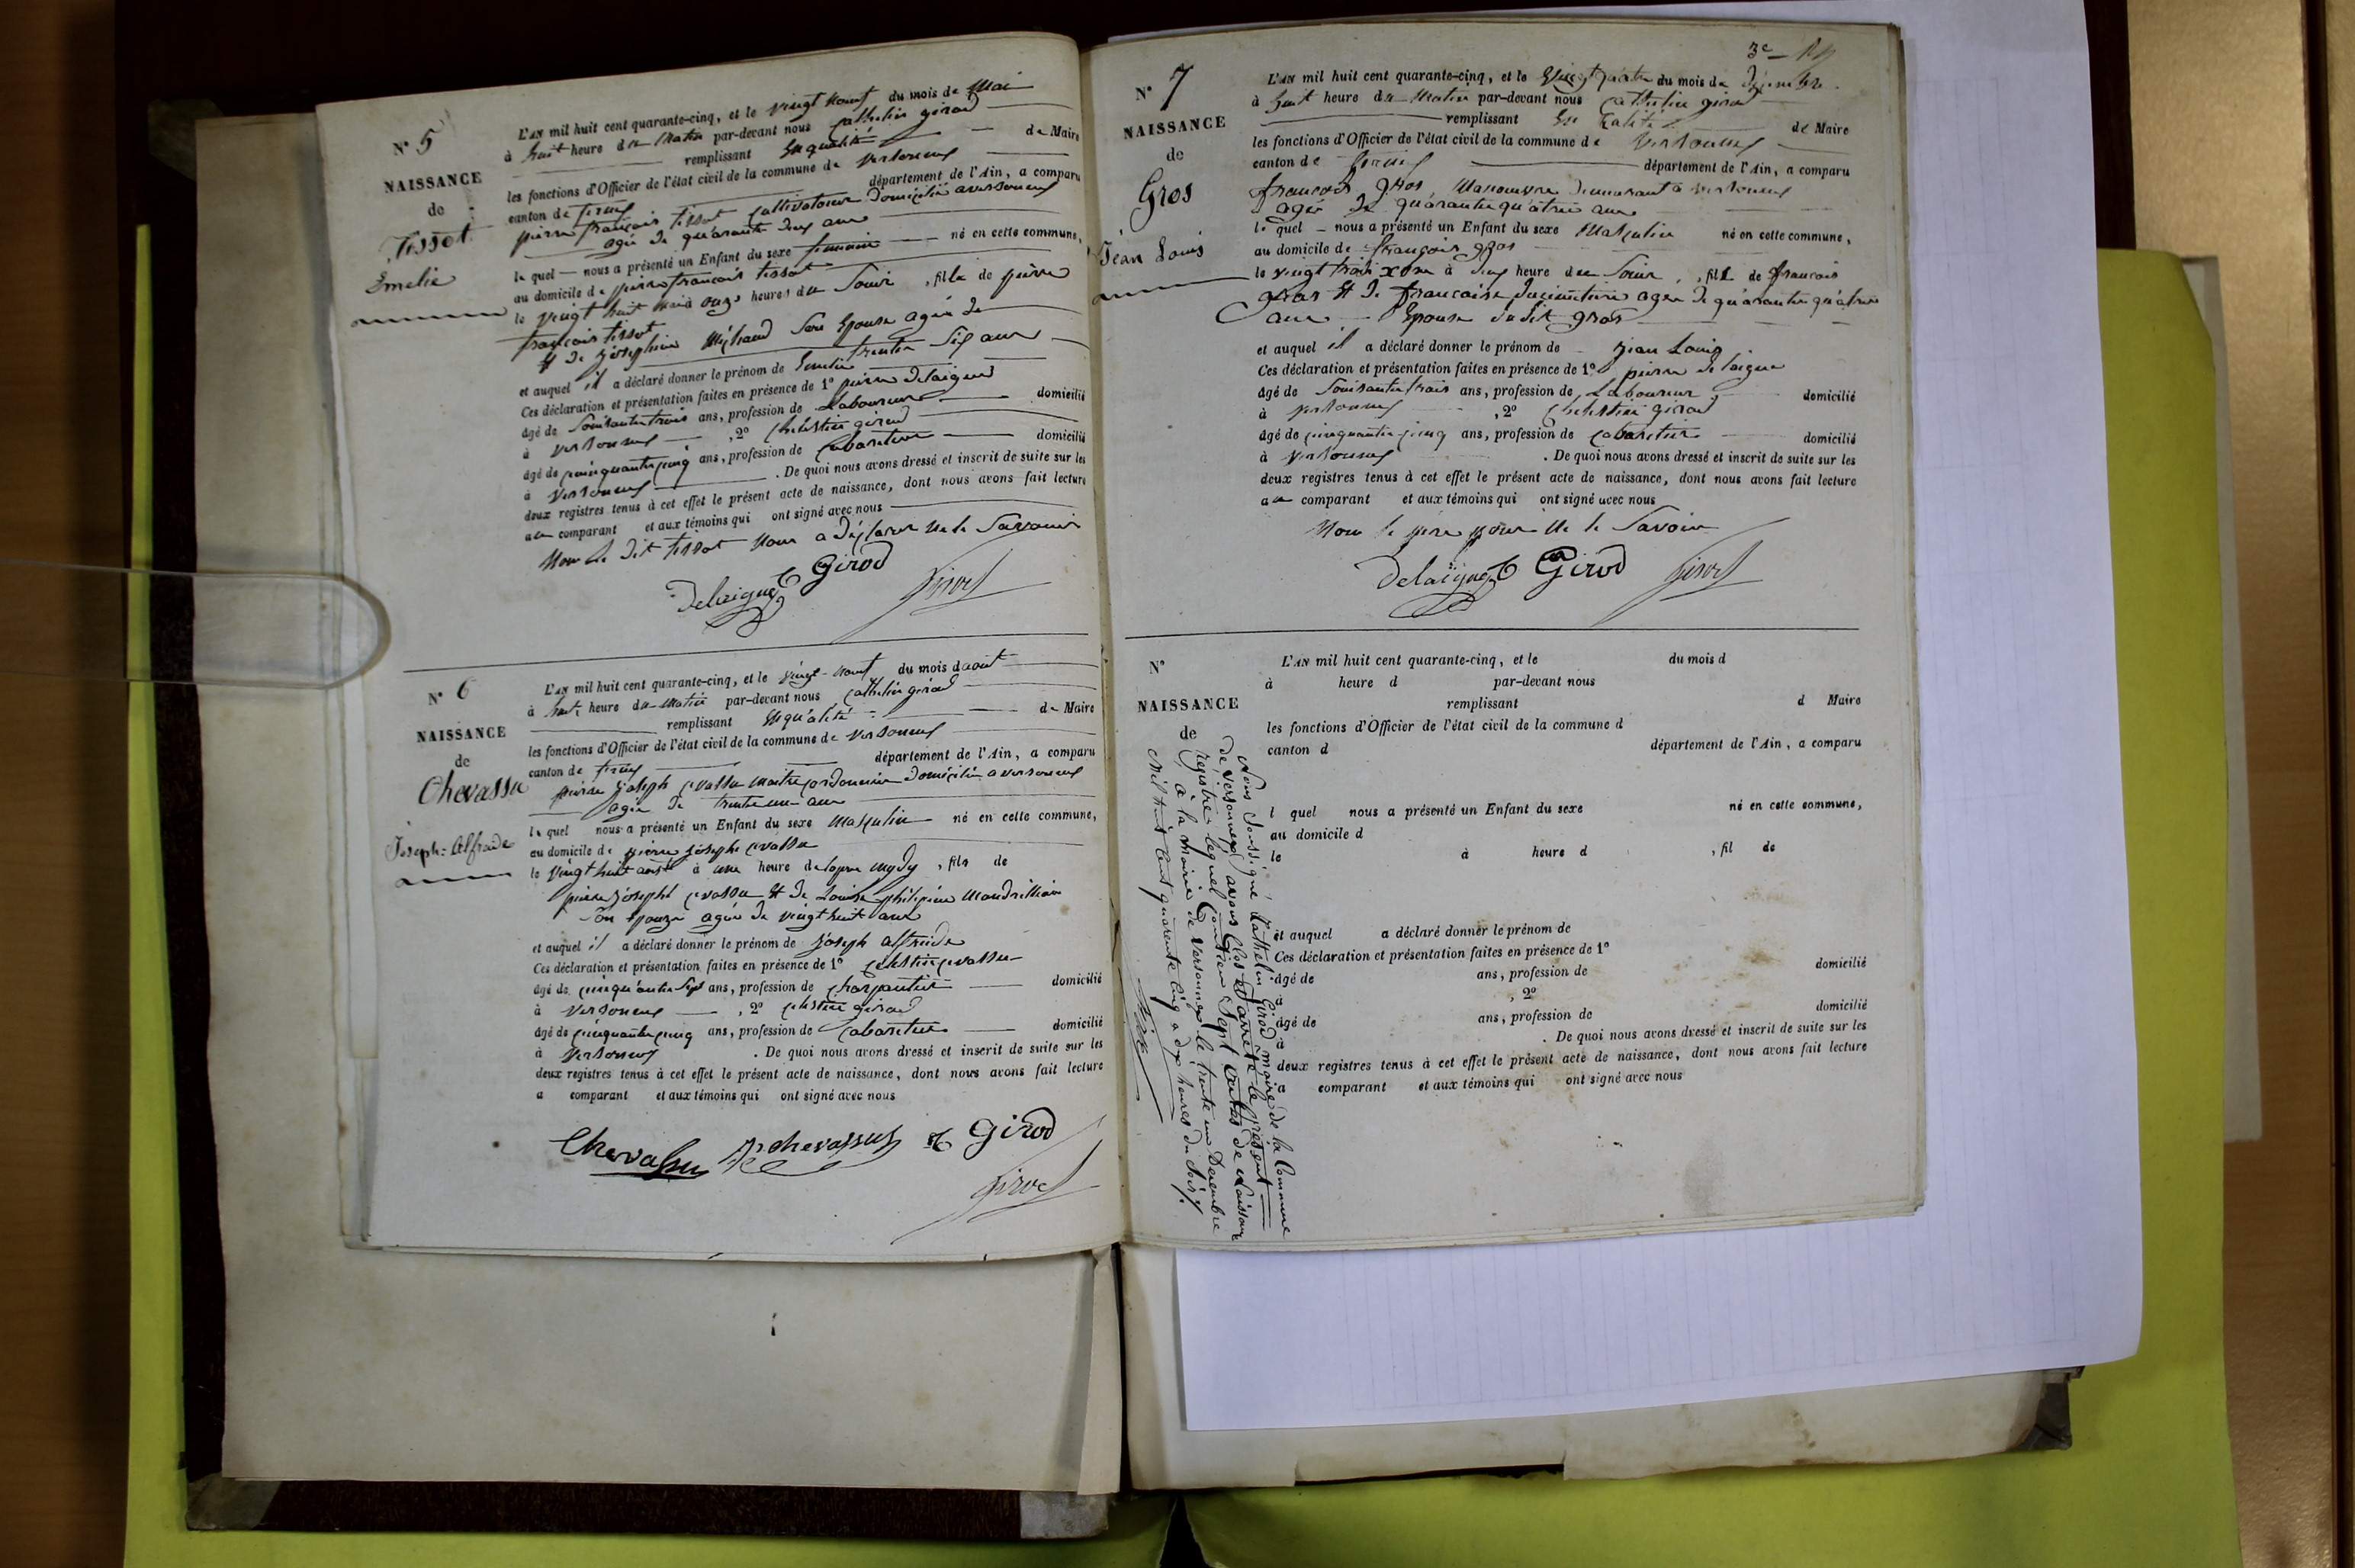 N° 5
NAISSANCE
de
Tissot
Emelie
L'AN mil huit cent quarante-cinq, et le vingt neuf du mois de Mai
à huit heure du Matin par-devant nous Cathelin girod
remplissant En qualité de Maire
les fonctions d'Officier de l'état civil de la commune de Versonnex
canton de ferney département de l'Ain, a comparu
pierre françois tissot Cultivateur domicilié a versonnex
agée de quarante deux ans
le quel — nous a présenté un Enfant du sexe feminin — né en cette commune,
au domicile de pierre françois tissot
le vingt huit mai à onze heures du Soir, fille de pierre
françois tissot
et de josephine Michaud Son Epouse agée de
trente Six ans
et auquel il a déclaré donner le prénom de Emelie
Ces déclaration et présentation faites en présence de 1° pierre Delaigue
âgé de Soixante trois ans, profession de Laboureur domicilié
à Versonnex , 2° Chelestin girod
âgé de cinquante cinq ans, profession de Cabaretier domicilié
à Versonnex . De quoi nous avons dressé et inscrit de suite sur les
deux registres tenus à cet effet le présent acte de naissance, dont nous avons fait lecture
au comparant et aux témoins qui ont signé avec nous
Non le dit tissot pour a déclarer ne le Savoir
Delaigue C Girod Girod
N° 6
NAISSANCE
de
Chevassu
Joseph: Alfraide
L'AN mil huit cent quarante-cinq, et le vingt-neuf du mois daout
à huit heure du Matin par-devant nous Cathelin girod
remplissant En qualité de Maire
les fonctions d'Officier de l'état civil de la commune de Versonnex
canton de ferney département de l'Ain, a comparu
pierre joseph cvassu maitre cordonnier domicilié a versonnex
agée de trente un ans
le quel nous a présenté un Enfant du sexe Masculin né en cette commune,
au domicile de pierre joseph cvassu
le vingt huit aout à une heure de lapre mydy , fils de
pierre joseph cvassu et de Louise philipine Mandrillion
Son Epouze agée de vingt huit ans
et auquel il a déclaré donner le prénom de joseph alfraide
Ces déclaration et présentation faites en présence de 1° Célestin cvassu
âgé de cinquante Sept ans, profession de Charpantier domicilié
à Versonnex , 2° Celestin girod
âgé de cinquante cinq ans, profession de Cabaretier domicilié
à Versonnex . De quoi nous avons dressé et inscrit de suite sur les
deux registres tenus à cet effet le présent acte de naissance, dont nous avons fait lecture
a comparant et aux témoins qui ont signé avec nous
Chevassu chevassus C Girod
Girod
3e
N° 7
NAISSANCE
de
Gros
Jean Louis
L'AN mil huit cent quarante-cinq, et le Vingt quatre du mois de décembre
à huit heure du Matin par-devant nous Cathelin girod
remplissant En Calité de Maire
les fonctions d'Officier de l'état civil de la commune de Versonnex
canton de ferney département de l'Ain, a comparu
francois gros, Manouvre demeurant a versonnex
agée de quarante quatre ans
le quel — nous a présenté un Enfant du sexe Masculin né en cette commune,
au domicile de françois gros
le vingt trois xbre à deux heure du Soir , fils de francois
gros et de francoise Ducimetiere agée de quarante quatre
ans Epouse du dit gros
et auquel il a déclaré donner le prénom de jean Louis
Ces déclaration et présentation faites en présence de 1° pierre delaigue
âgé de Soixante trois ans, profession de Laboureur domicilié
à Versonnex , 2° Chelestin girod
âgé de cinquante cinq ans, profession de Cabaretier domicilié
à Versonnex . De quoi nous avons dressé et inscrit de suite sur les
deux registres tenus à cet effet le présent acte de naissance, dont nous avons fait lecture
au comparant et aux témoins qui ont signé avec nous
Non le père pour ne le Savoir
Delaigue C Girod Girod
N°
NAISSANCE
de
L'AN mil huit cent quarante-cinq, et le du mois d
à heure d par-devant nous
remplissant d Maire
les fonctions d'Officier de l'état civil de la commune d
canton d département de l'Ain, a comparu
l quel nous a présenté un Enfant du sexe né en cette commune,
au domicile d
le à heure d , fil de
et auquel a déclaré donner le prénom de
Ces déclaration et présentation faites en présence de 1°
âgé de ans, profession de domicilié
à , 2°
âgé de ans, profession de domicilié
à . De quoi nous avons dressé et inscrit de suite sur les
deux registres tenus à cet effet le présent acte de naissance, dont nous avons fait lecture
a comparant et aux témoins qui ont signé avec nous
Nous soussigné Cathelin Girod maire de la Commune
de Versonnex, avons Clos et arreté le présent
registre lequel Contien Sept actes de Naissance
à la mairie de Versonnex le trente un Decembre
mil huit Cent quarente Cinq a dix heures du Soir.
Girod